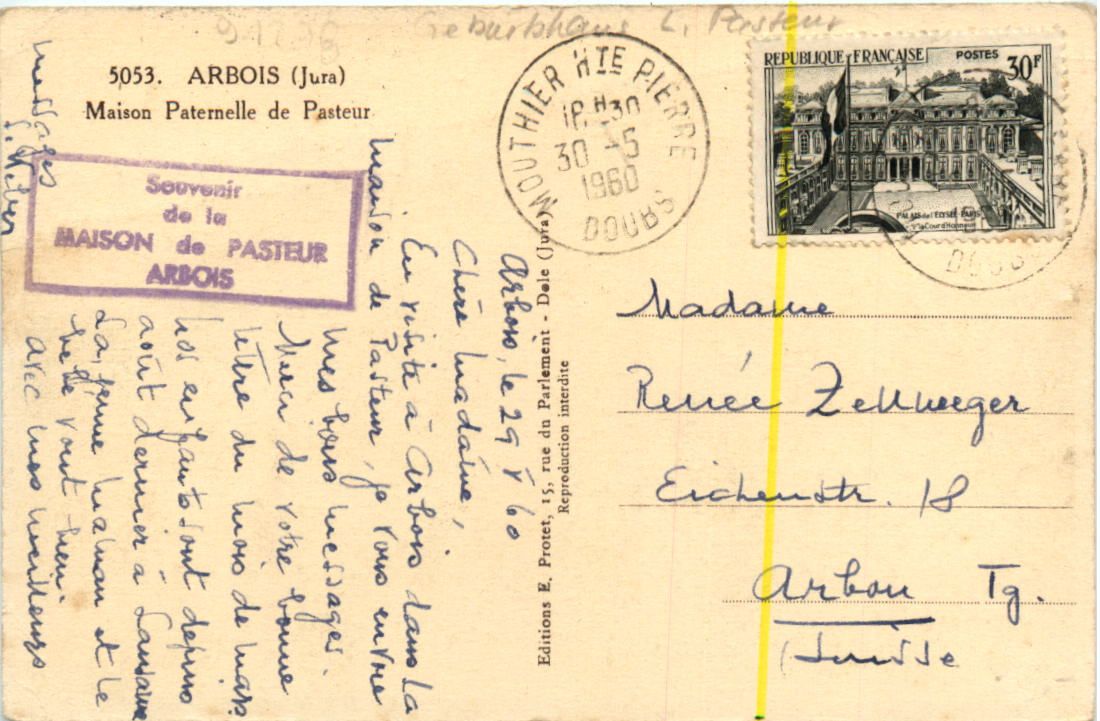 Geburtshaus L. Pasteur
5053. ARBOIS (Jura)
Maison Paternelle de Pasteur
Souvenir
de la
MAISON de PASTEUR
ARBOIS
Arbois, le 29 V 60
Chère Madame,
En visite à Arbois dans la
maison de Pasteur, je vous envoie
mes bons messages.
Merci de votre bonne
lettre du mois de mars
nos enfants sont depuis
août dernier à Lausanne
La jeune maman et le
bébé vont bien.
avec mes meilleurs
messages
Editions E. Protet, 15, rue du Parlement - Dole (Jura)
Reproduction interdite
MOUTHIER HTE PIERRE
30 -5
1960
DOUBS
REPUBLIQUE FRANÇAISE POSTES 30F
PALAIS de l'ELYSÉE-PARIS
la Cour d'Honneur
DOUBS
Madame
Renée Zellweger
Eichenstr. 18
Arbon Tg.
(Suisse